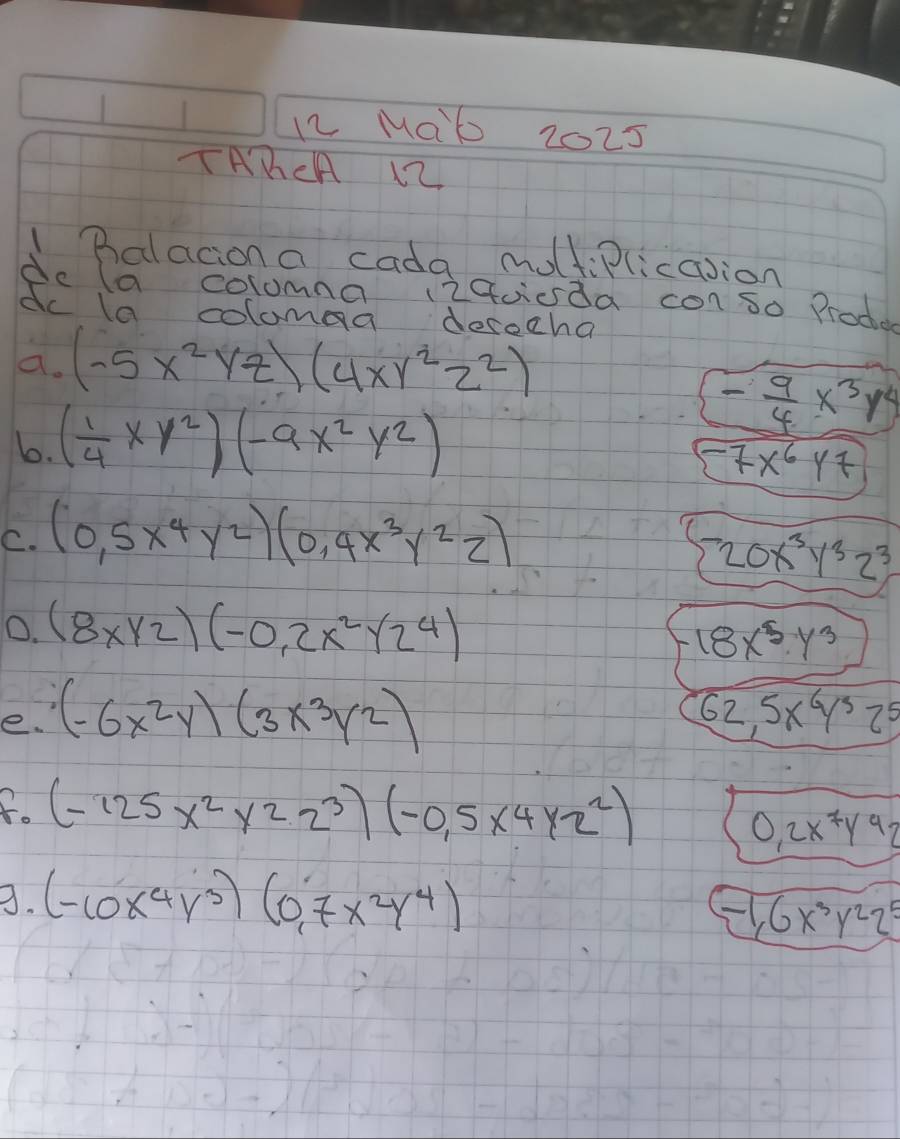 12 Mayo 2025
TARCA 12
1 Ralaciona cada moltiplicasion
de la colomna izquicrda con so Prod
dc la colomna derecha
a. (-5x²yz) (4xy²z²)
- 9/4 x³y⁴
b. (1/4 xy²) (-9x²y²)
-7x⁶y7
c. (0,5x⁴y²) (0,4x³y²z)
-20x³y³z³
D. (8xyz) (-0,2x²yz⁴)
-18x⁵y³
e. (-6x²y) (3x³y²)
62,5x⁶y³z⁵
f. (-125x²y²z³) (-0,5x4yz²)
0,2x⁷y⁴z
g. (-10x⁴y³) (0,7x²y⁴)
-1,6x³y²z⁵